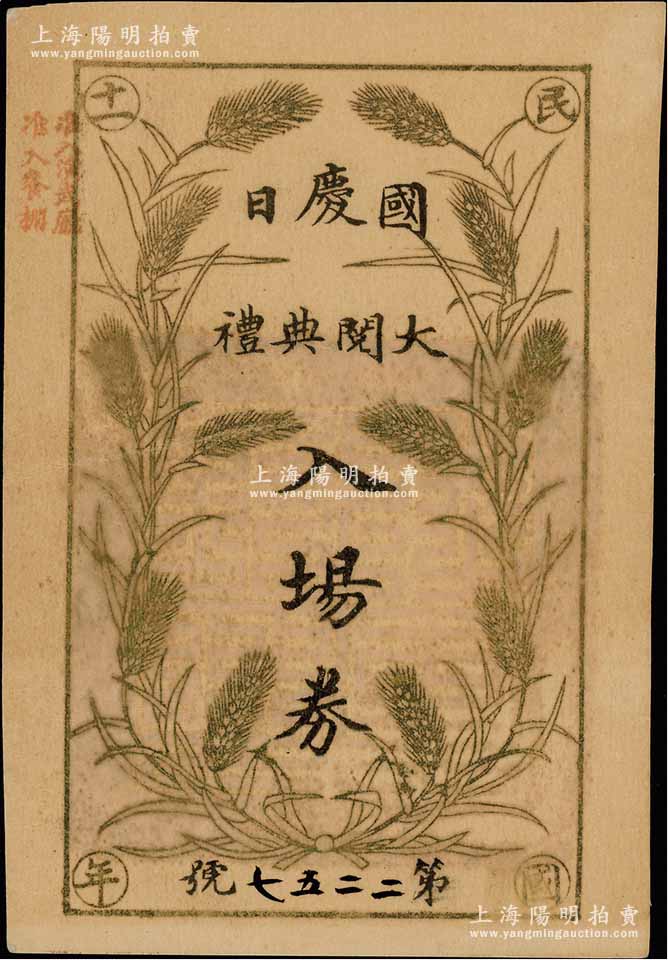 上海陽明拍賣
www.yangmingauction.com
民國
十一年
國慶日
大閱典禮
入場券
第二二五七號
准入餐棚
上海陽明拍賣
www.yangmingauction.com
上海陽明拍賣
www.yangmingauction.com